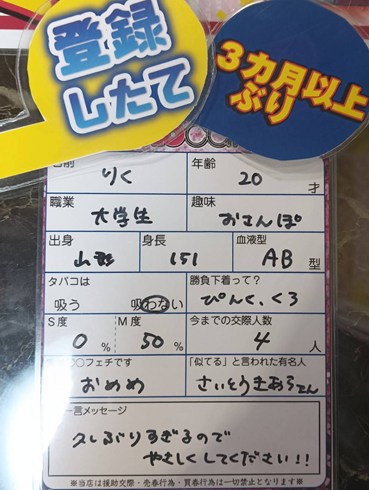 登録
したて
3カ月以上
ぶり
名前 りく 年齢 20 才
職業 大学生 趣味 おさんぽ
出身 山形 身長 151 血液型 AB 型
タバコは 吸う 吸わない 勝負下着って? ぴんく、くろ
S度 0 % M度 50 % 今までの交際人数 4 人
○○フェチです おめめ 「似てる」と言われた有名人 さいとうきあらさん
一言メッセージ
久しぶりすぎるので
やさしくしてください!!
※当店は援助交際・売春行為・買春行為は一切禁止となります※